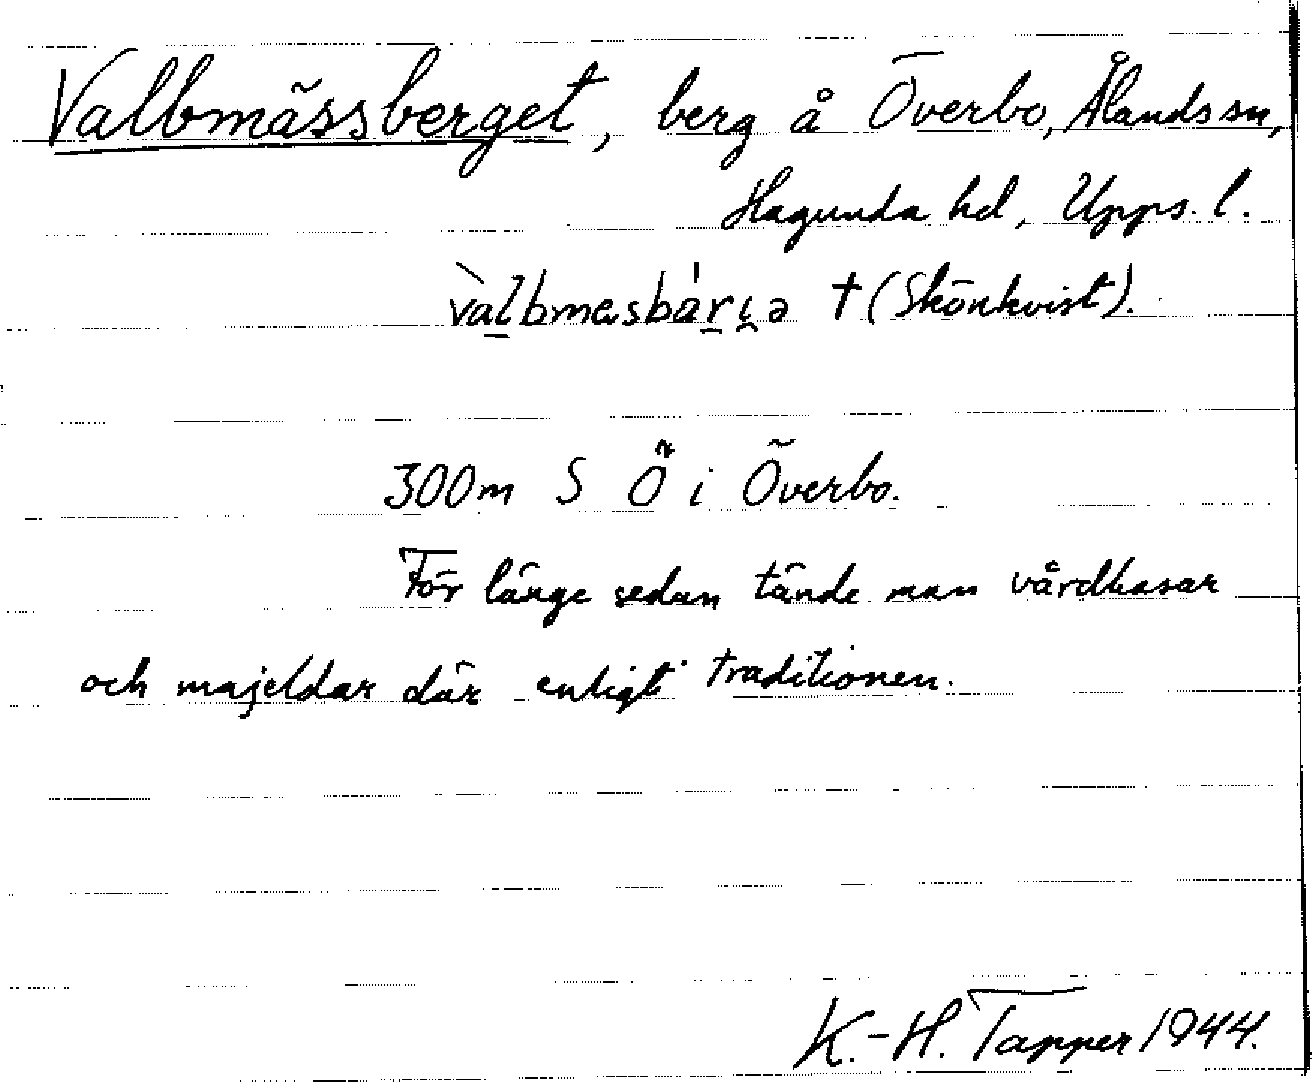 Valbmässberget, berg å Överbo, Ålands sn,
Hagunda hd, Upps. l.
vàlbmesbár̠i̯ə † (Skönkvist).
300m S Ö i Överbo.
För länge sedan tände man vårdkasar
och majeldar där enligt traditionen.
K.-H. Tapper 1944.